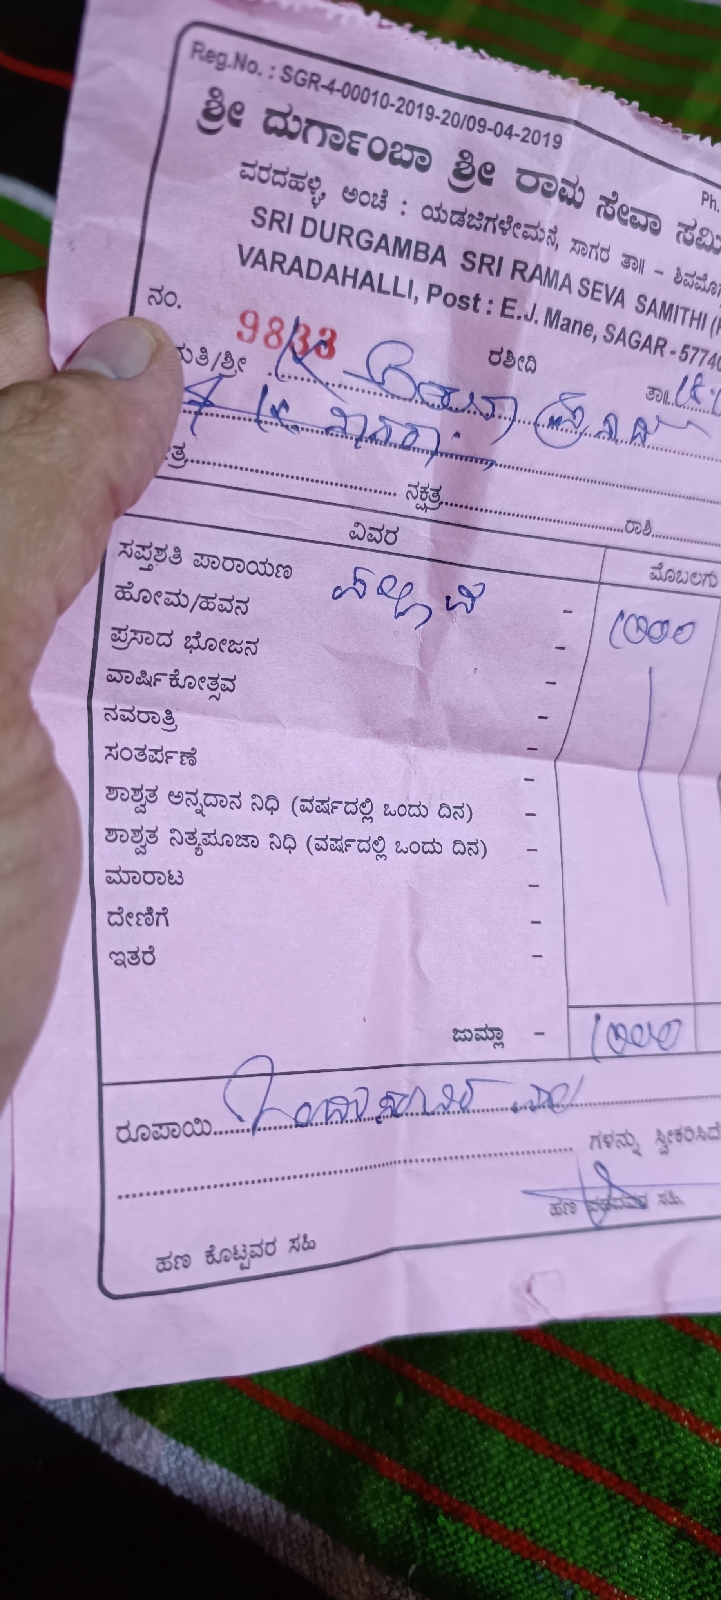 Reg.No. : SGR-4-00010-2019-20/09-04-2019
Ph.
ಶ್ರೀ ದುರ್ಗಾಂಬಾ ಶ್ರೀ ರಾಮ ಸೇವಾ ಸಮಿ
ವರದಹಳ್ಳಿ, ಅಂಚೆ : ಯಡಜಿಗಳೇಮನೆ, ಸಾಗರ ತಾ॥ – ಶಿವಮೊ
SRI DURGAMBA SRI RAMA SEVA SAMITHI (
VARADAHALLI, Post : E.J. Mane, SAGAR - 5774
ನಂ. 9833 ರಶೀದಿ
ತಾ॥
ಮತಿ/ಶ್ರೀ
ನಕ್ಷತ್ರ ರಾಶಿ
ವಿವರ ಮೊಬಲಗು
ಸಪ್ತಶತಿ ಪಾರಾಯಣ – 1000
ಹೋಮ/ಹವನ –
ಪ್ರಸಾದ ಭೋಜನ –
ವಾರ್ಷಿಕೋತ್ಸವ –
ನವರಾತ್ರಿ –
ಸಂತರ್ಪಣೆ –
ಶಾಶ್ವತ ಅನ್ನದಾನ ನಿಧಿ (ವರ್ಷದಲ್ಲಿ ಒಂದು ದಿನ) –
ಶಾಶ್ವತ ನಿತ್ಯಪೂಜಾ ನಿಧಿ (ವರ್ಷದಲ್ಲಿ ಒಂದು ದಿನ) –
ಮಾರಾಟ –
ದೇಣಿಗೆ –
ಇತರೆ –
ಜುಮ್ಲಾ – 1000
ರೂಪಾಯಿ ಒಂದು ಸಾವಿರ
ಗಳನ್ನು ಸ್ವೀಕರಿಸಿದೆ
ಹಣ ಕೊಟ್ಟವರ ಸಹಿ ಹಣ ಪಡೆದವರ ಸಹಿ.